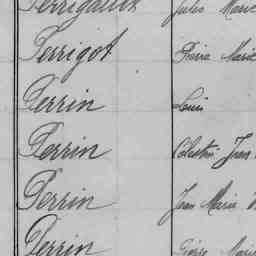 Jules Marie
Perrigot Pierre Marie
Perrin Louis
Perrin Célestin Jean
Perrin Jean Marie
Perrin Pierre Marie